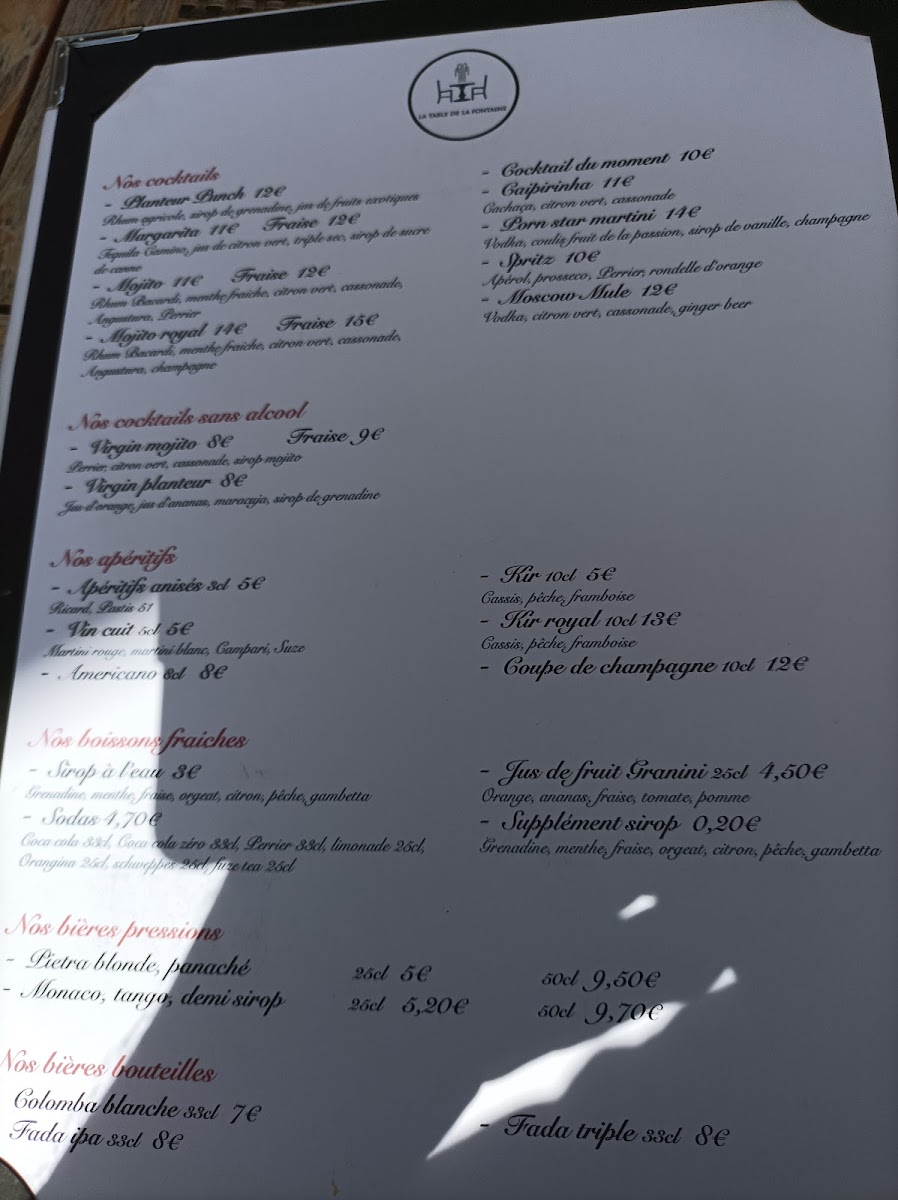 LA TABLE DE LA FONTAINE
Nos cocktails
- Planteur Punch 12€
Rhum agricole, sirop de grenadine, jus de fruits exotiques
- Margarita 11€ Fraise 12€
Tequila Camino, jus de citron vert, triple sec, sirop de sucre
de canne
- Mojito 11€ Fraise 12€
Rhum Bacardi, menthe fraîche, citron vert, cassonade,
Angustura, Perrier
- Mojito royal 14€ Fraise 15€
Rhum Bacardi, menthe fraîche, citron vert, cassonade,
Angustura, champagne
- Cocktail du moment 10€
- Caipirinha 11€
Cachaça, citron vert, cassonade
- Porn star martini 14€
Vodka, coulis fruit de la passion, sirop de vanille, champagne
- Spritz 10€
Apérol, prosseco, Perrier, rondelle d'orange
- Moscow Mule 12€
Vodka, citron vert, cassonade, ginger beer
Nos cocktails sans alcool
- Virgin mojito 8€ Fraise 9€
Perrier, citron vert, cassonade, sirop mojito
- Virgin planteur 8€
Jus d'orange, jus d'ananas, maracuja, sirop de grenadine
Nos apéritifs
- Apéritifs anisés 3cl 5€
Ricard, Pastis 51
- Vin cuit 5cl 5€
Martini rouge, martini blanc, Campari, Suze
- Americano 8cl 8€
- Kir 10cl 5€
Cassis, pêche, framboise
- Kir royal 10cl 13€
Cassis, pêche, framboise
- Coupe de champagne 10cl 12€
Nos boissons fraiches
- Sirop à l'eau 3€
Grenadine, menthe, fraise, orgeat, citron, pêche, gambetta
- Sodas 4,70€
Coca cola 33cl, Coca cola zéro 33cl, Perrier 33cl, limonade 25cl,
Orangina 25cl, schweppes 25cl, fuze tea 25cl
- Jus de fruit Granini 25cl 4,50€
Orange, ananas, fraise, tomate, pomme
- Supplément sirop 0,20€
Grenadine, menthe, fraise, orgeat, citron, pêche, gambetta
Nos bières pressions
- Pietra blonde, panaché 25cl 5€ 50cl 9,50€
- Monaco, tango, demi sirop 25cl 5,20€ 50cl 9,70€
Nos bières bouteilles
Colomba blanche 33cl 7€
Fada ipa 33cl 8€
- Fada triple 33cl 8€